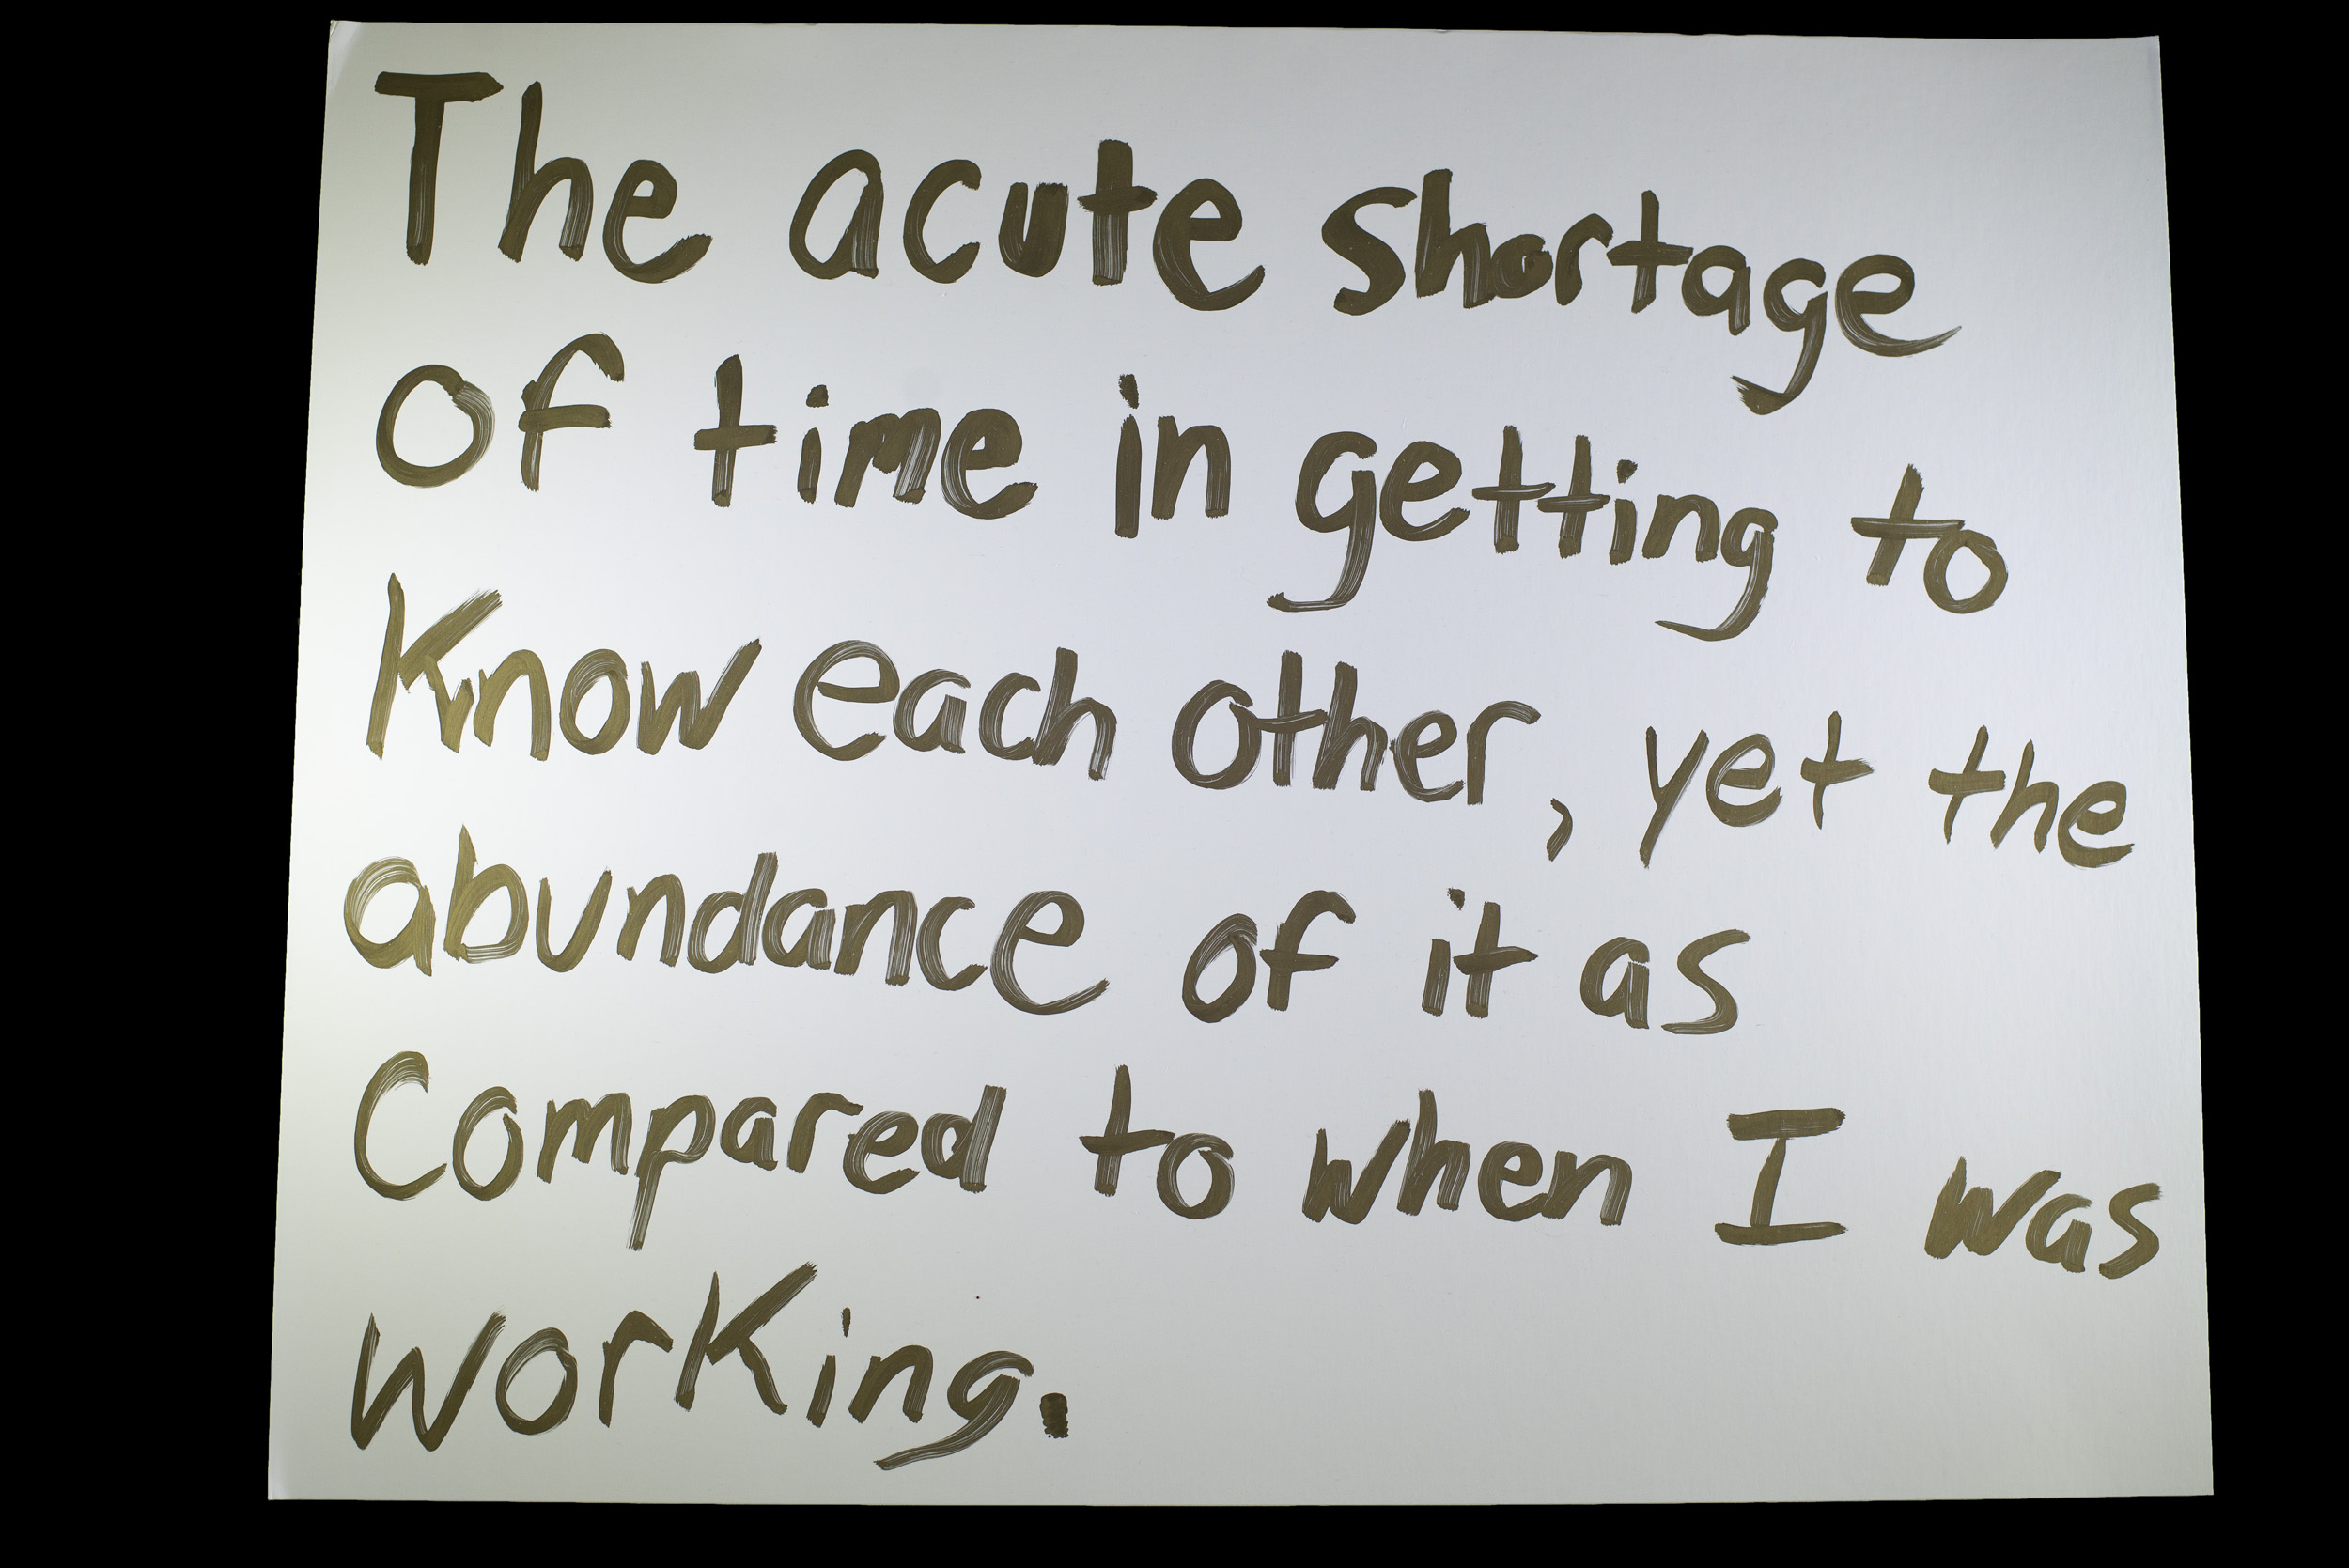 The acute shortage
of time in getting to
know each other, yet the
abundance of it as
compared to when I was
working.